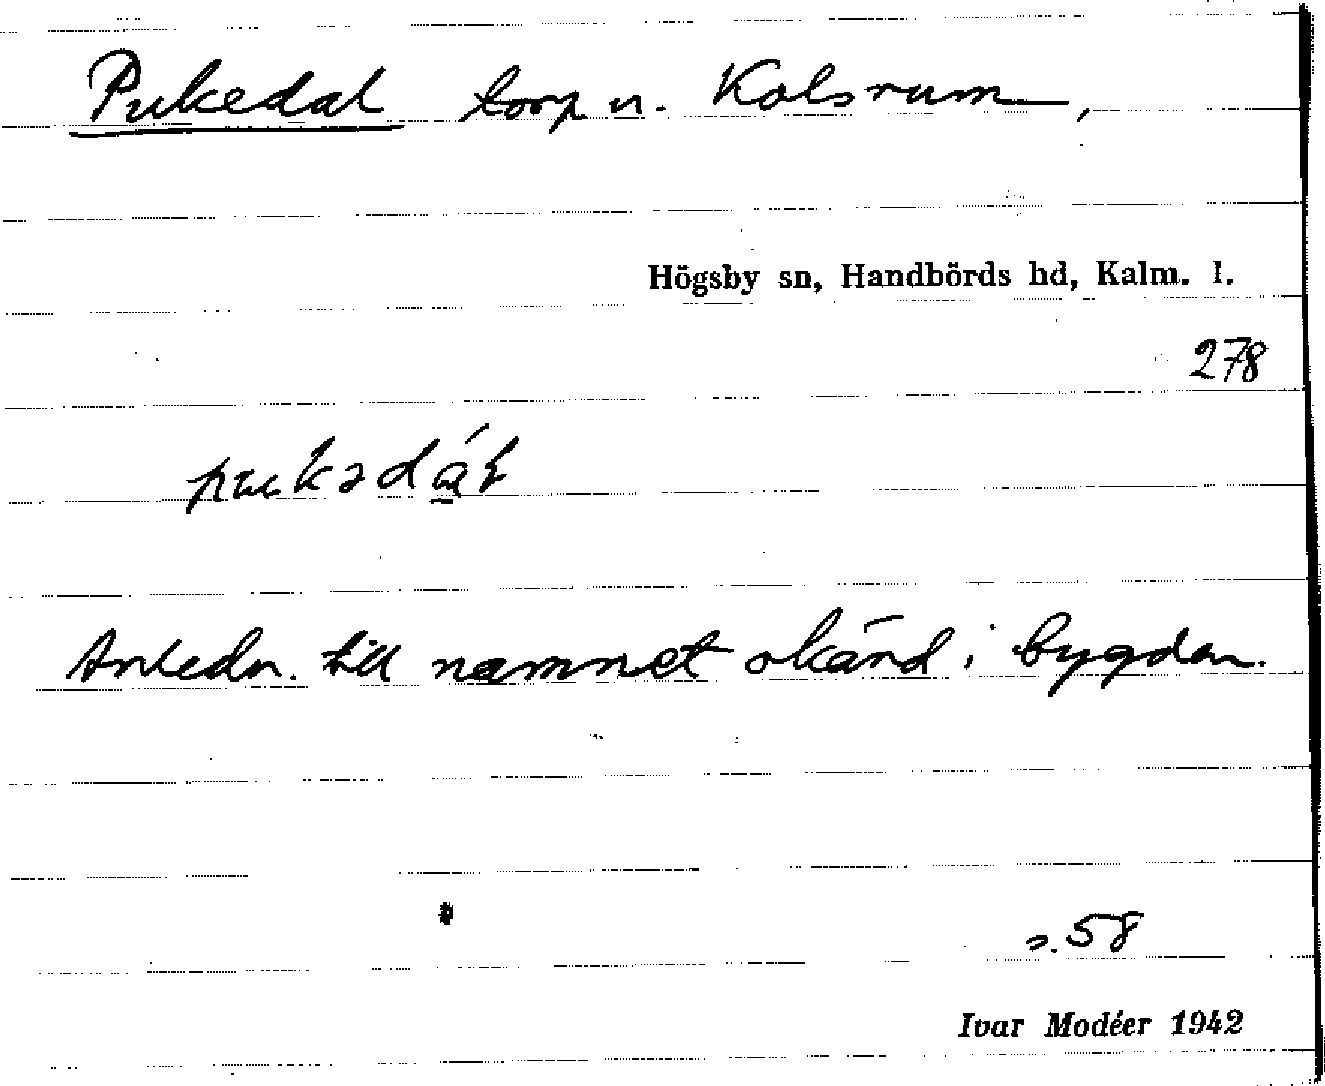 Pukedal torp u. Kolsrum,
Högsby sn, Handbörds hd, Kalm. l.
278
pukədál
Anledn. till namnet okänd i bygden.
s. 58
Ivar Modéer 1942